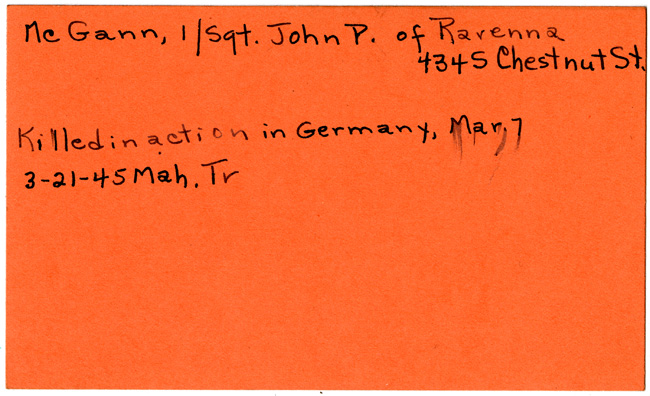 McGann, 1/Sgt. John P. of Ravenna
4345 Chestnut St.
Killed in action in Germany, Mar, 7
3-21-45 Mah. Tr